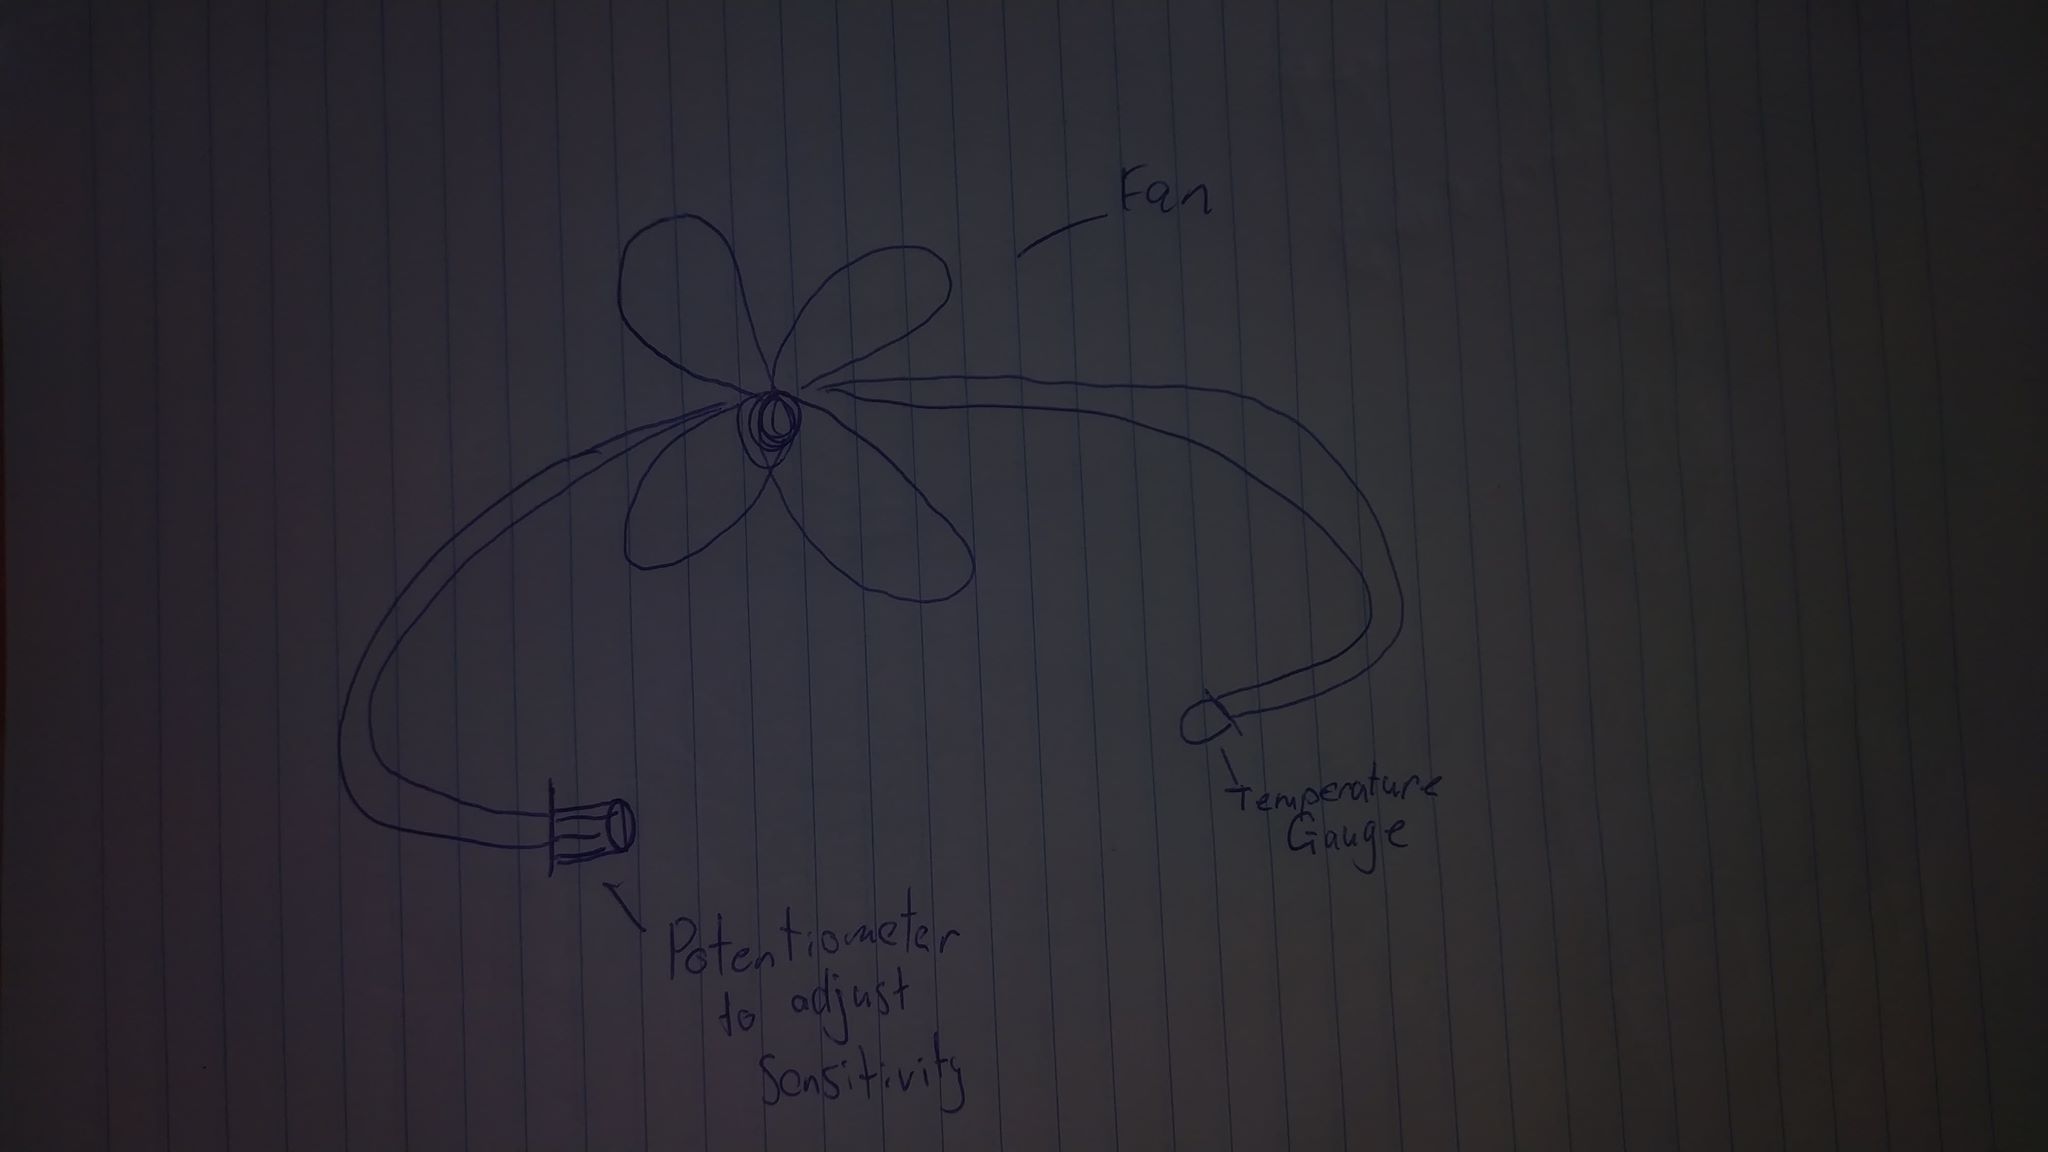 Fan
Temperature
Gauge
Potentiometer
to adjust
Sensitivity